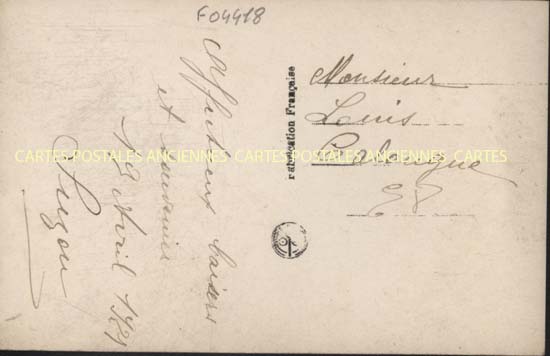 F04418
Affectueux baisers
et souvenir
18 Avril 1921
Suzon
Fabrication Française
Monsieur
Louis
CARTES POSTALES ANCIENNES CARTES POSTALES ANCIENNES CARTES POSTALES ANCIENNES